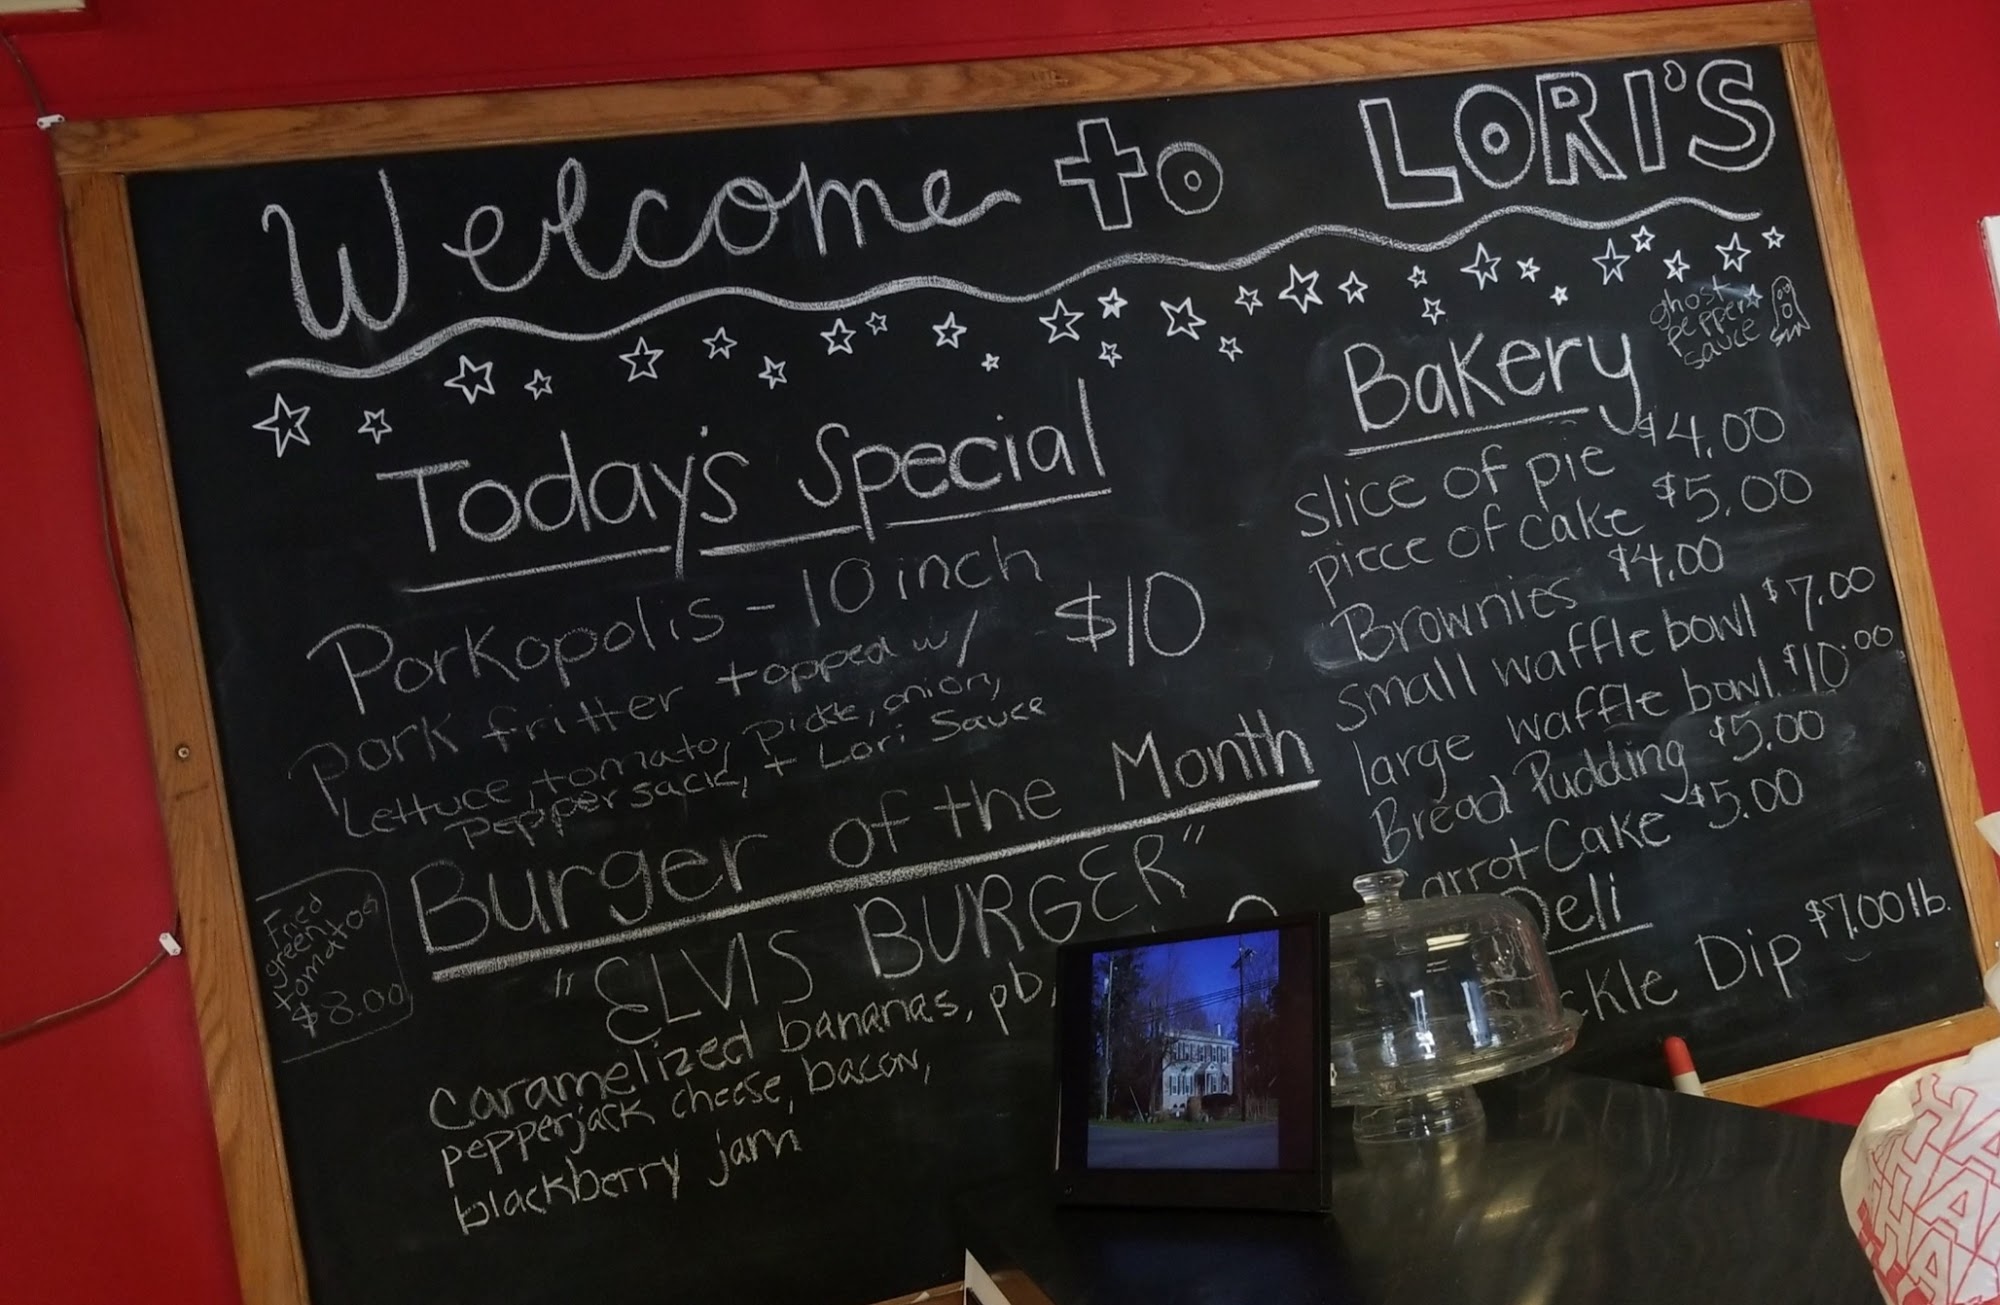 Welcome to LORI'S
Today's Special
Porkopolis - 10 inch
$10
pork fritter topped w/
lettuce, tomato, pickle, onion,
peppersack, + Lori Sauce
Burger of the Month
"ELVIS BURGER"
Caramelized bananas, pb,
pepperjack cheese, bacon,
blackberry jam
Fried
green
tomatoes
$8.00
ghost
pepper
sauce
Bakery
slice of pie $4.00
piece of cake $5.00
Brownies $4.00
small waffle bowl $7.00
large waffle bowl $10.00
Bread Pudding $5.00
arrot Cake $5.00
Deli
ckle Dip $7.00 lb.